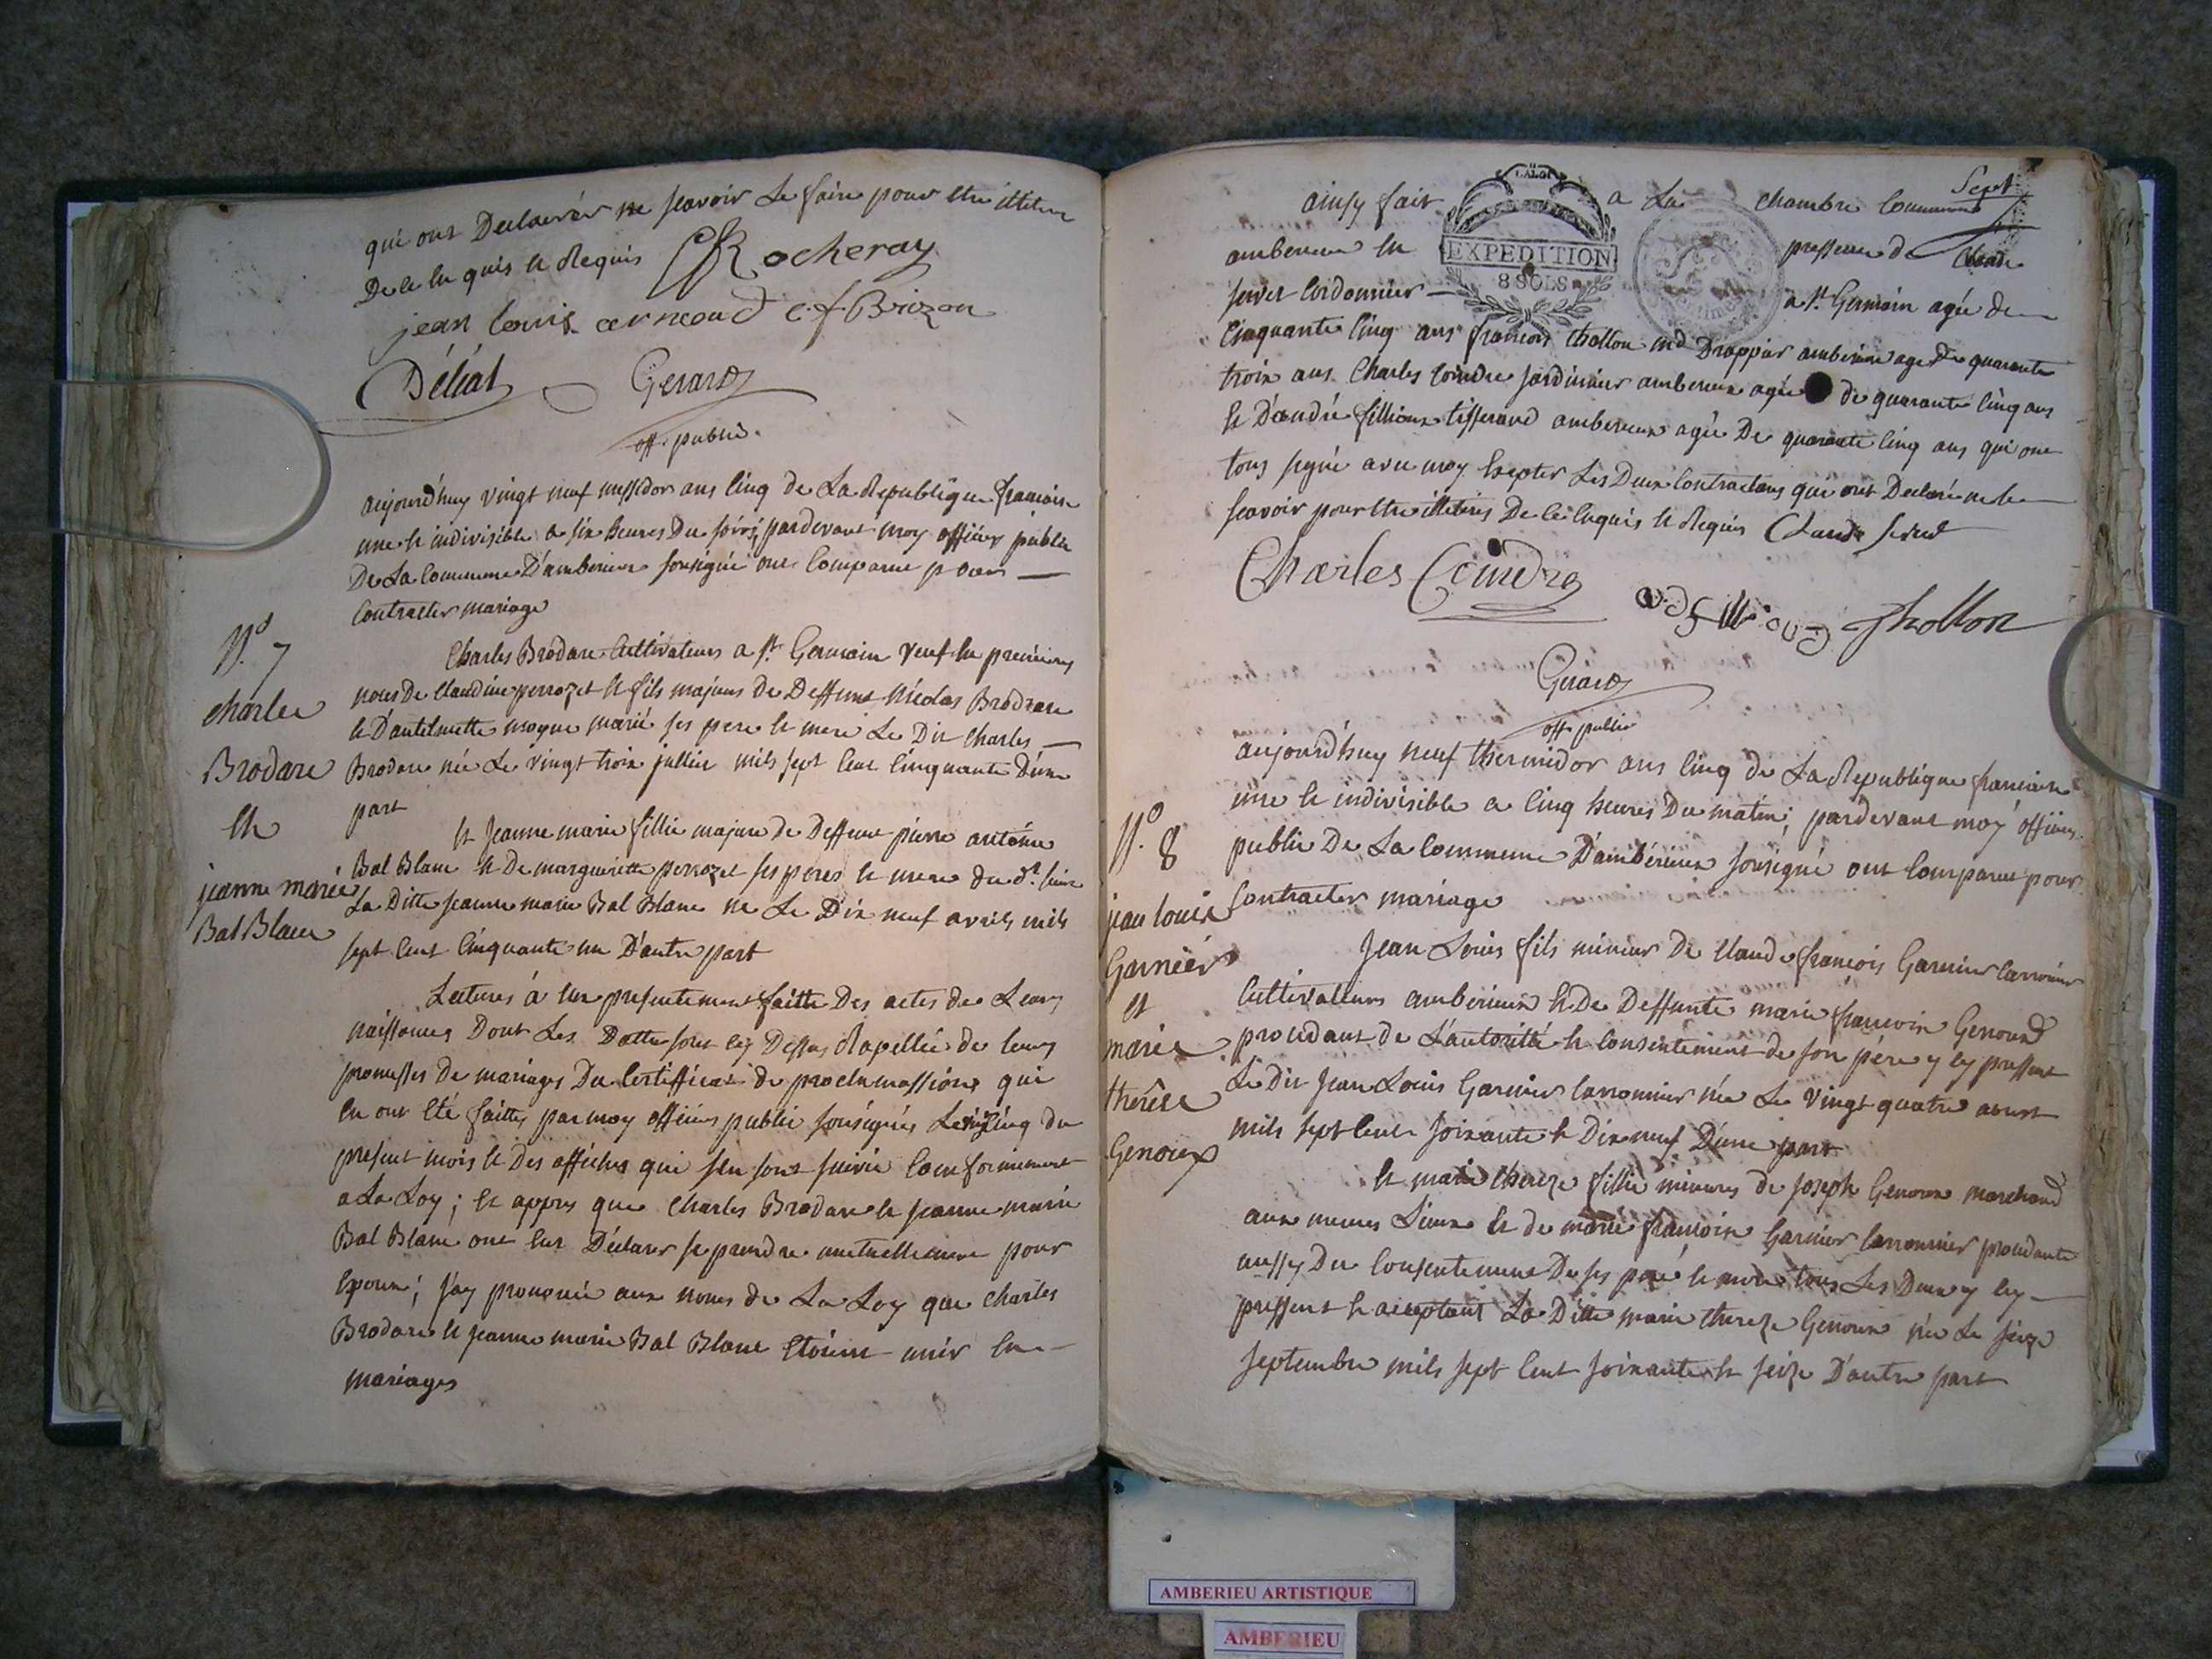 qui ont Declairér ne scavoir Le faire pour etre illitere
De ce en quis et Requis Rocheray
jean louis arneoud c. f. Brizon
Déliat Gerard
off. public.
aujourd'huy vingt neuf messidor ans cinq de La Republique francoise
une et indivisible a six heures Du soirs, pardevant moy officier public
De La Commune D'amberieux sousigné ont Comparue pour
Contracter mariage
N.o 7
charles
Brodare
et
jeanne marie
Bal Blanc
Charles Brodare Cultivateurs a St. Germain veuf en premieres
noces De Claudine perrozet et fils majeurs de Deffunt Nicolas Brodare
et D'antelmette moyne marié ses pere et mere Le Dit Charles
Brodare née Le vingt trois jullier mils sept Cent Cinquante D'une
part
Et Jeanne marie fillie majeure de Deffunt pierre antoine
Bal Blanc et De margueritte perrozet ses peres et mere du d. lieux
La Ditte Jeanne marie Bal Blanc ne Le Dix neuf avrils mils
sept Cent Cinquante un D'autre part
Lectures á eux presentement faitte Des actes de Leurs
naissances Dont Les Datte sont cy Dessus Rapellée de leurs
promesses de mariages Du Certifficat de proclamassions qui
en ont été faittes par moy officier public sousignés Le vingt cinq du
present mois et Des affiches qui s'en sont suivie Conformement
a La Loy ; et appres que Charles Brodare et Jeanne marie
Bal Blanc ont eut Déclarer se prendre mutuellement pour
Epoux ; j'ay prononcé aux noms de La Loy que Charles
Brodare et Jeanne marie Bal Blanc étoient unir en
mariages
Sept
ainsy fait a La Chambre Commune
EXPEDITION
8 SOLS
amberieux en pressence de Claude
servet Cordonnier a St. Germain agée de
Cinquante Cinq ans françois thollon md Drappier amberieux age De quarante
trois ans Charles Coindre jardinier amberieux agée de quarante Cinq ans
et D'andré fillioux tisserand amberieux agée De quarante Cinq ans qui ont
tous signé avec moy Excepter Les Deux Contractans qui ont Declaré ne le
scavoir pour etre illiteres De ce enquis et Requis Claude servet
Charles Coindre
andé fillioud Thollon
Gerard
off. public
N.o 8
jean louis
Garnier
et
marie
therêse
Genoux
aujourd'huy neuf thermidor ans cinq de La Republique francoise
une et indivisible a Cinq heures Du matin; pardevant moy officier
public De La Commune D'ambérieux sousigné ont Comparue pour
Contracter mariage
Jean Louis fils mineur De Claude françois Garnier larronnier
Cultivateurs amberieux et De Deffunte marie francoise Genoud
procedant de L'autorité et Consentement de son pére y cy pressent
Le Dit Jean Louis Garnier larronnier née Le vingt quatre aoust
mils sept Cent soixante et Dix neuf D'une part
Et marie thereze fillie mineures de joseph Genoux marchand
aux memes Lieux et de marie francoise Garnier larronnier procedante
aussy Du Consentement De ses pere et mere tous Les Deux y cy
pressent et acceptant La Ditte marie thereze Genoux née Le seize
septembre mils sept Cent soixante et seize D'autre part
AMBERIEU ARTISTIQUE
AMBERIEU